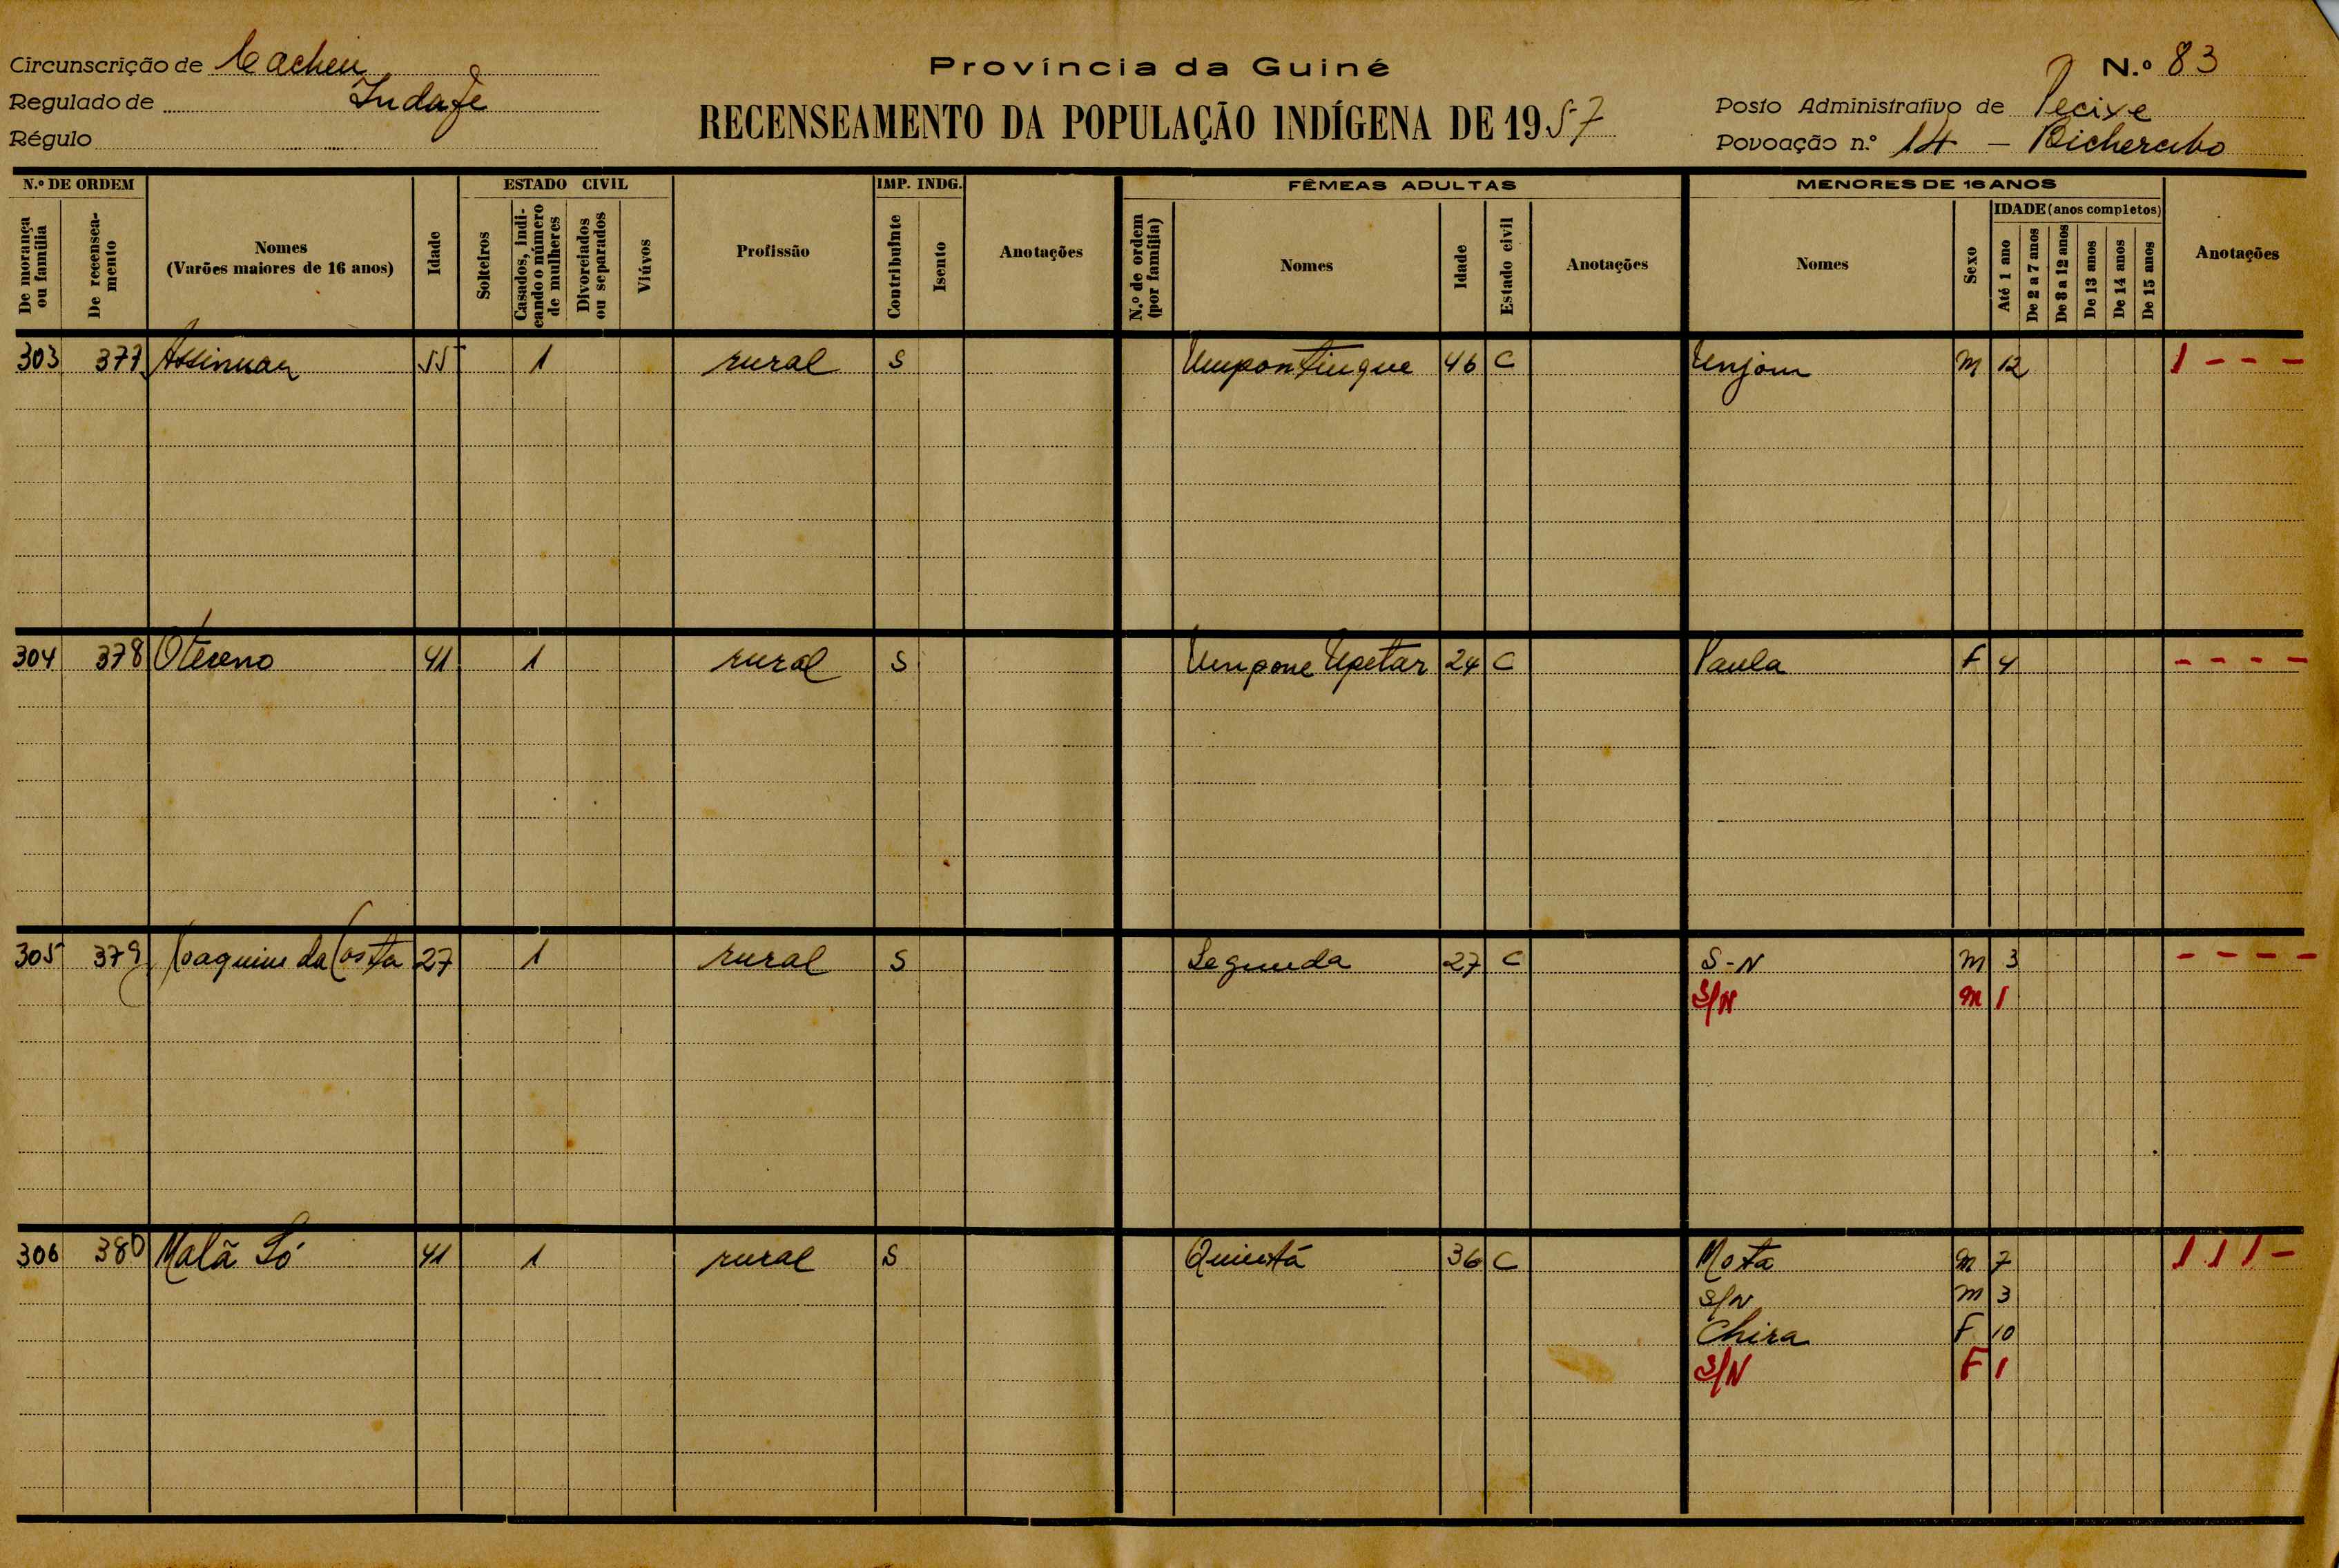 Circunscrição de Cacheu
Província da Guiné
N.º 83
Regulado de Indafe
RECENSEAMENTO DA POPULAÇÃO INDÍGENA DE 1957
Posto Administrativo de Pecixe
Régulo
Povoação n.º 14 –
N.º DE ORDEM
De morança ou família
De recenseamento
Nomes
(Varões maiores de 16 anos)
Idade
ESTADO CIVIL
Solteiros
Casados, indi-
cando o número
de mulheres
Divorciados
ou separados
Viúvos
Profissão
IMP. INDG.
Contribuinte
Isento
Anotações
FÊMEAS ADULTAS
N.º de ordem
(por família)
Nomes
Idade
Estado civil
Anotações
MENORES DE 16 ANOS
Nomes
Sexo
IDADE (anos completos)
Até 1 ano
De 2 a 7 anos
De 8 a 12 anos
De 13 anos
De 14 anos
De 15 anos
Anotações
303 377 55 1 rural S Umpontingue 46 C Unjom M 12 1 - - -
304 378 Otéveno 41 1 rural S Umpone Upetar 24 C Paula F 4 - - - -
305 379 Joaquim da Costa 27 1 rural S Segunda 27 C S-N M 3 - - - -
S/N M 1
306 380 Malã Só 41 1 rural S Quintá 36 C Mota M 7 1 1 1 -
S/N M 3
Chira F 10
S/N F 1